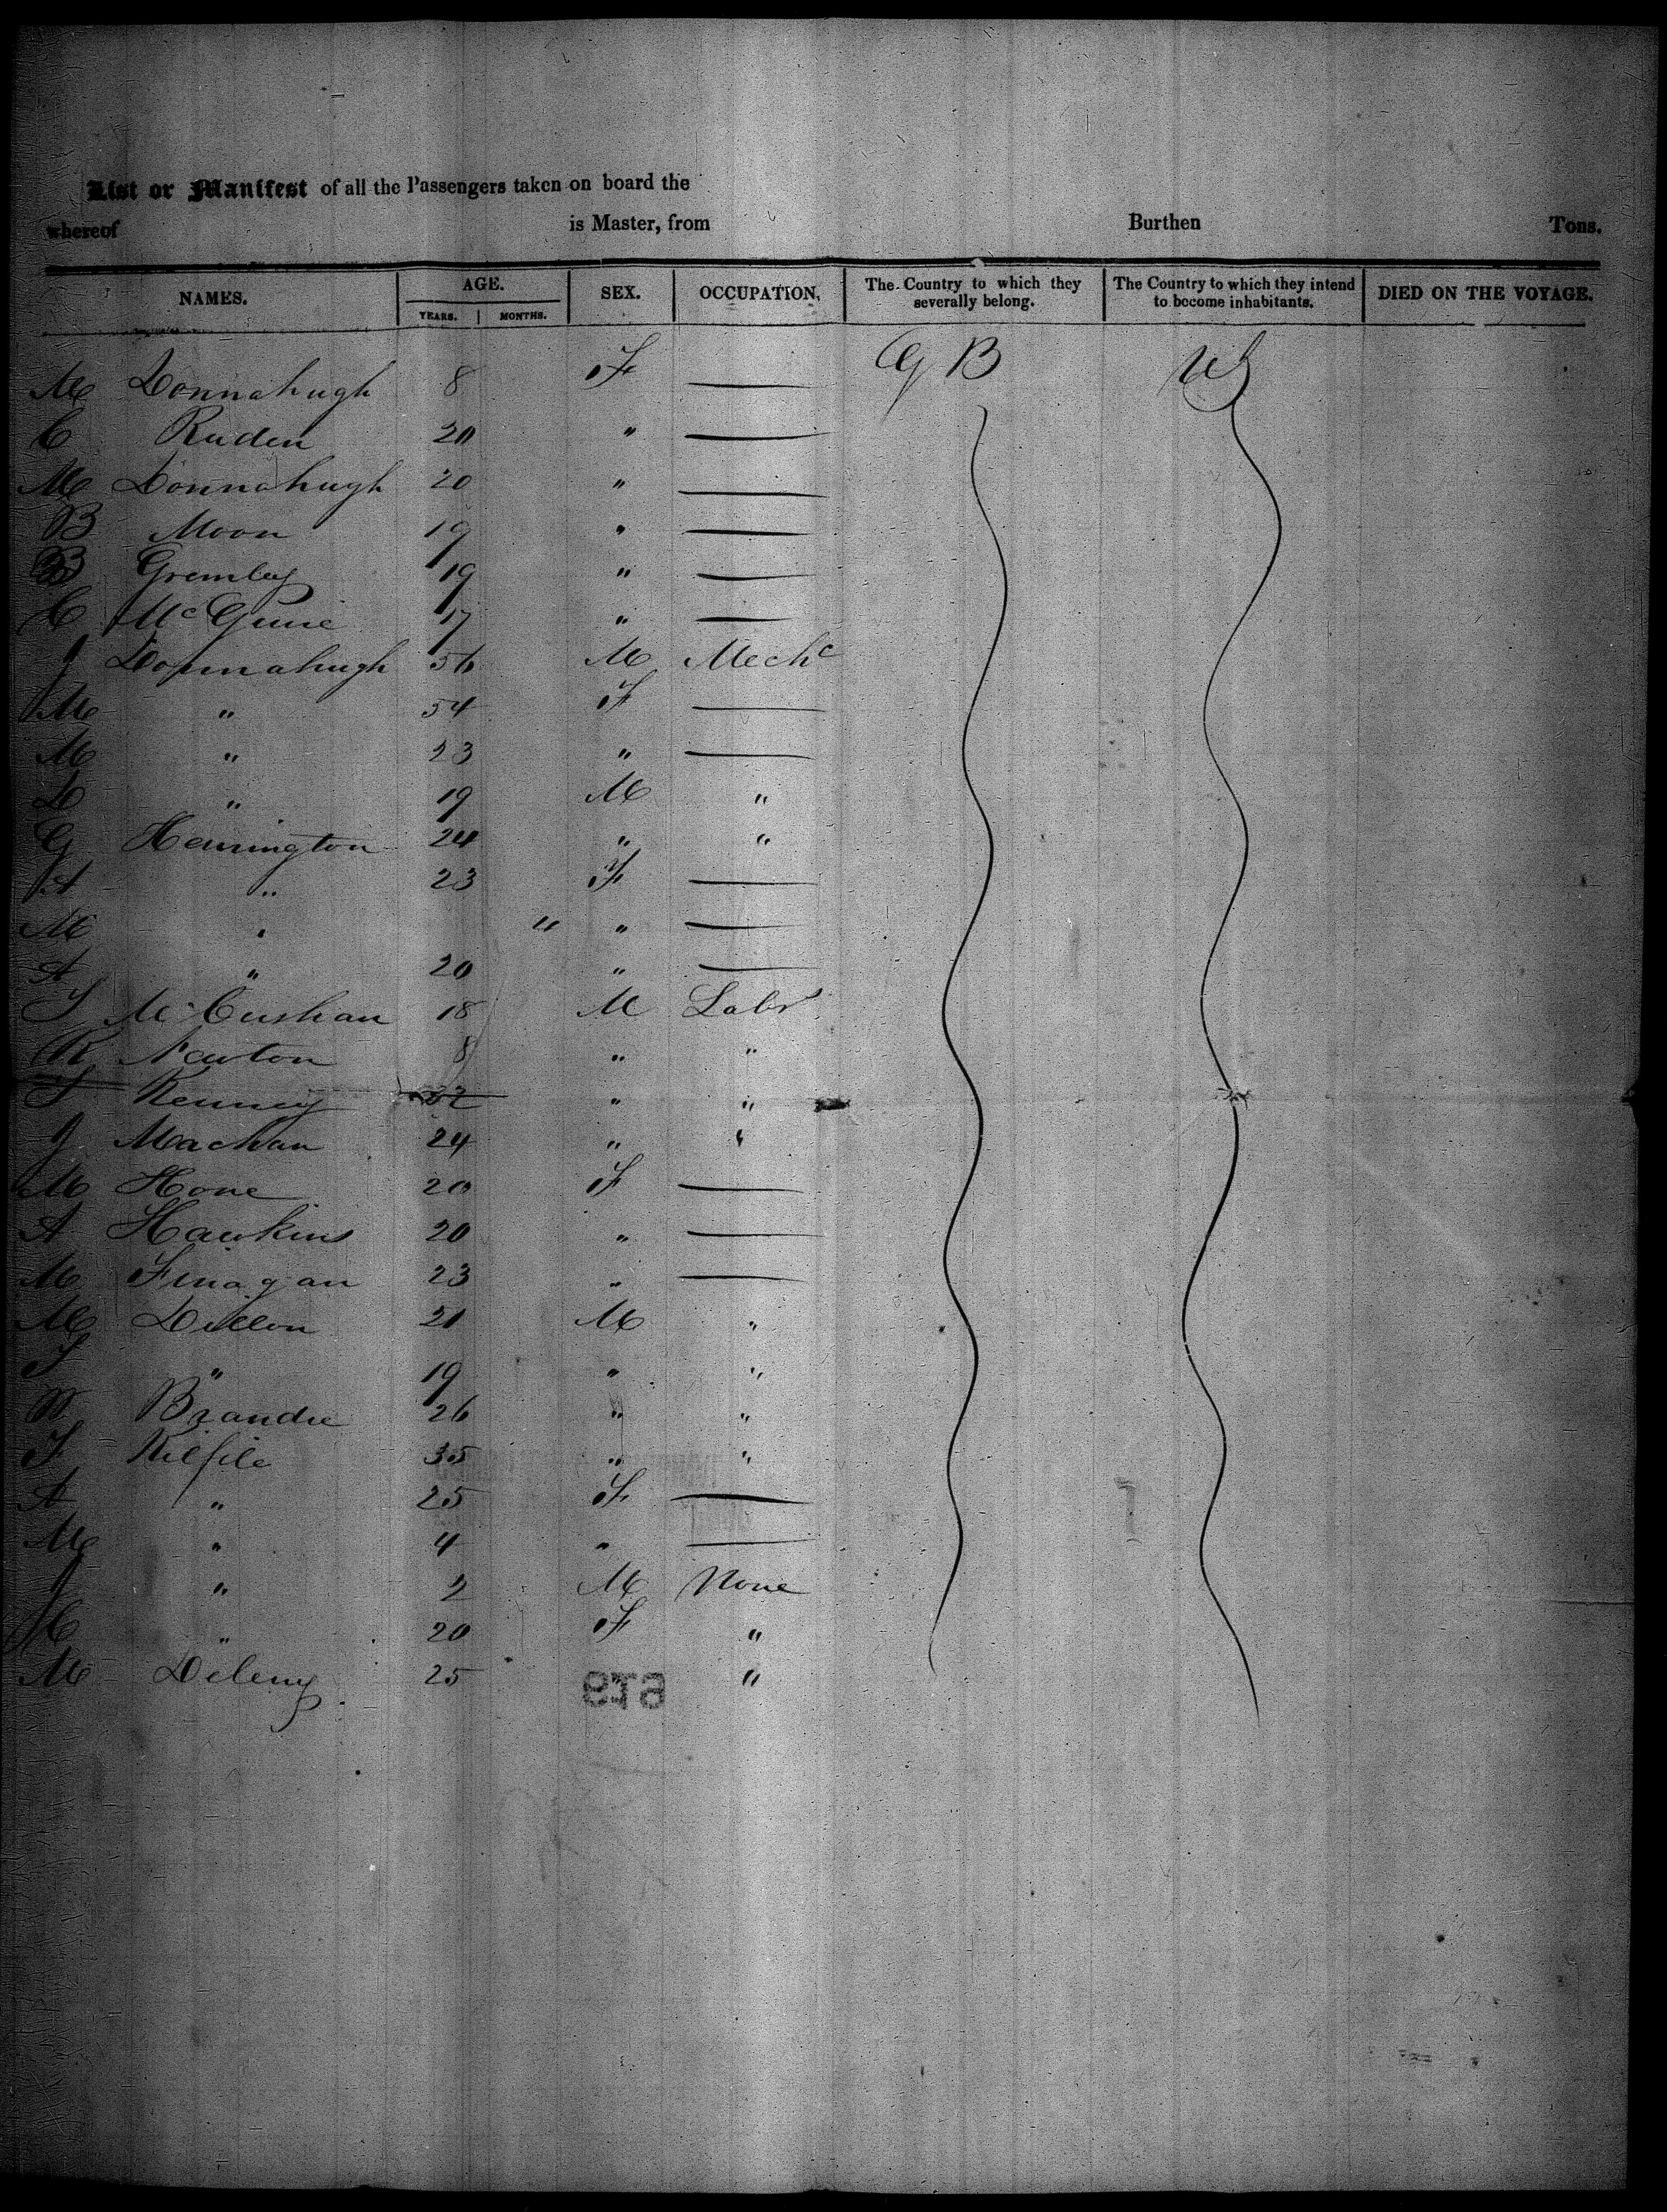 List or Manifest of all the Passengers taken on board the
whereof is Master, from Burthen Tons.
NAMES. AGE. SEX. OCCUPATION. The Country to which they severally belong. The Country to which they intend to become inhabitants. DIED ON THE VOYAGE.
YEARS. MONTHS.
M Donnahugh 8 F — G B US
C Ruden 20 " —
M Donnahugh 20 " —
B Moon 19 " —
B Gremley 19 " —
C McGuire 17 " —
J Donnahugh 56 M Mechc
M " 54 F —
M " 23 " —
D " 19 M "
G Henington 24 " "
A " 23 F —
M " " " —
A " 20 " —
T McCushan 18 M Labr
R Newton 8 " "
T Kenney 32 " "
J Machan 24 " "
M Hone 20 F —
A Hawkins 20 " —
M Finagan 23 " —
M Dillon 21 M "
T " 19 " "
Brandie 26 " "
F Kilfile 35 " "
A " 25 F —
M " 4 " —
J " 2 M None
" 20 F "
M Deleny 25 " "